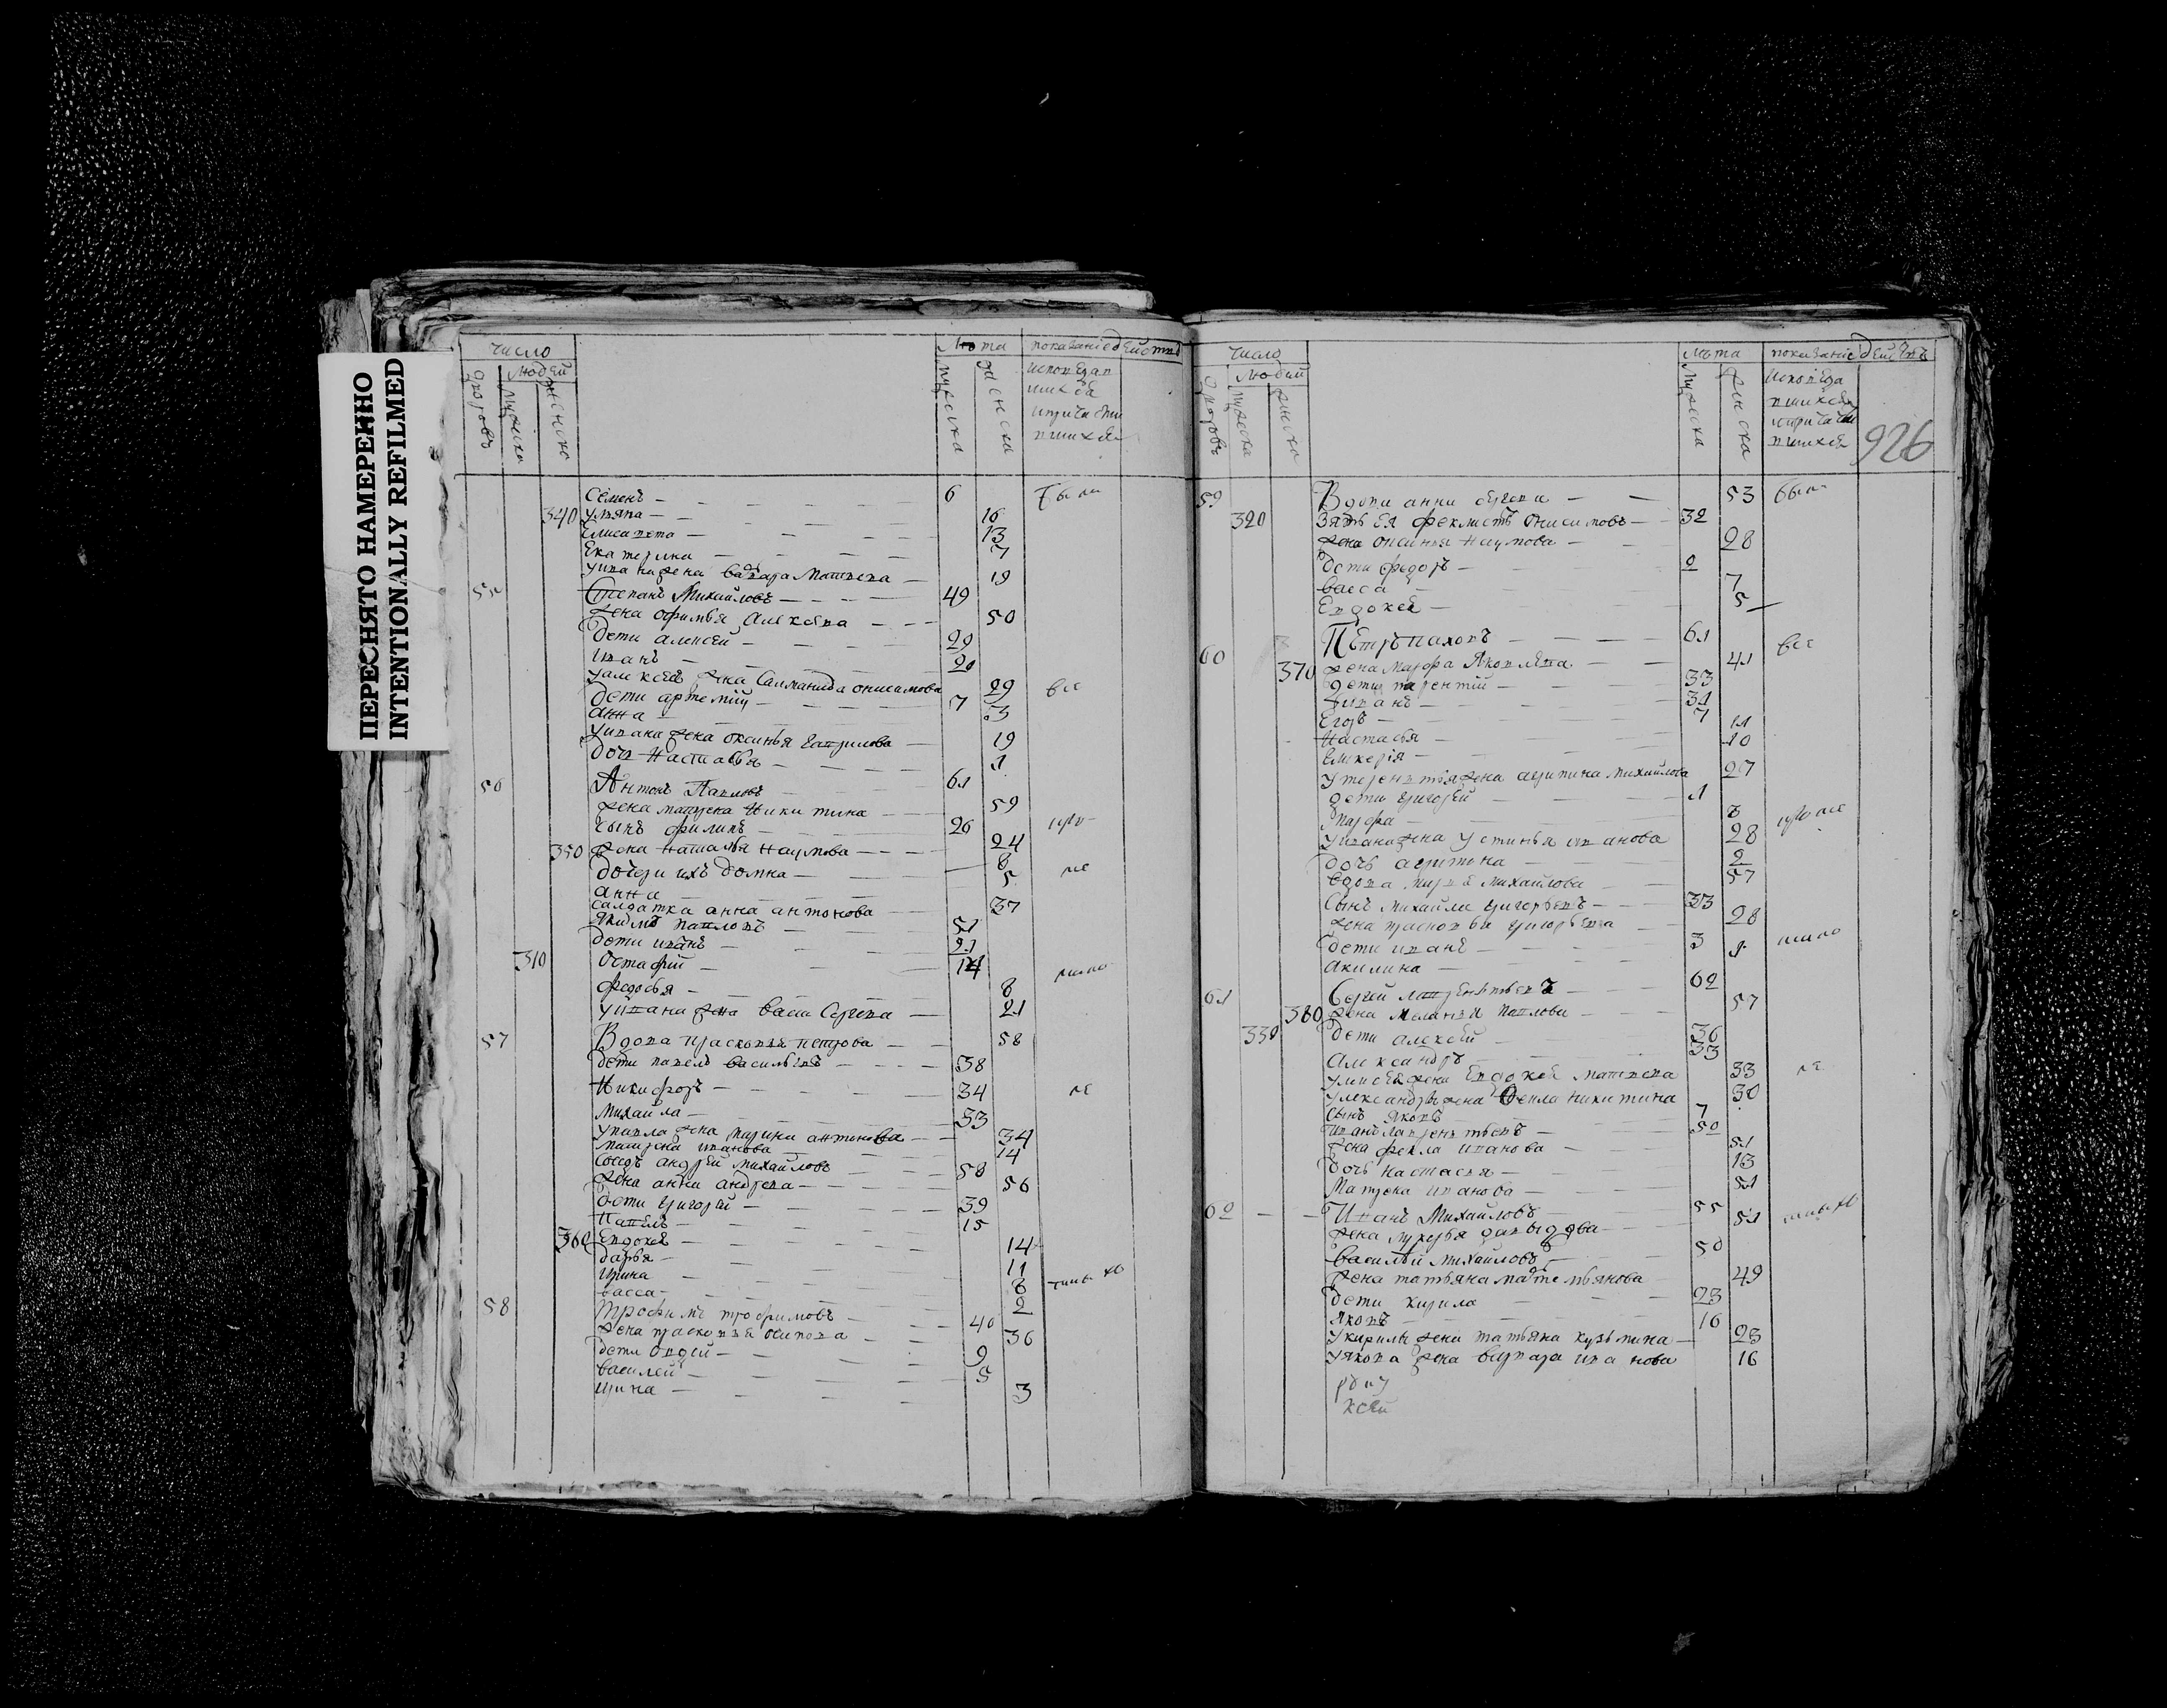 ПЕРЕСНЯТО НАМЕРЕННО
INTENTIONALLY REFILMED
число
людей
дворовъ
мужеска
женска
Лѣта
мужеска
женска
показание действъ
Семенъ — 6
340 Ульяна — 16
Елисавета — 13
Екатерина — 7
19
55 Степанъ Михайловъ — 49
жена офимья Алексѣева — 50
Дети алексей — 29
Иванъ — 20
жена Саламанида онисимова 29 все
Дети артемий — 7
анна — 3
Уивана жена оксинья Гаврилова — 19
Дочь Настасья — 1
56 Антонъ Павловъ 61
жена матрена Никитина 59
сынъ филипъ — 26
350 жена наталья Наумова — 24
дочери ихъ Домна — 8 не
анна 5
салдатка анна антонова 37
Якимъ Павловъ 51
Дети иванъ 21
310 Остафий — 14
Федосья — 8
Уивана жена васса Сергеева — 21
57 Вдова прасковья петрова 58
Дети павелъ васильевъ 38
Никифоръ — 34 не
Михайла — 33
Упавла жена марина антонова — 34
матрена иванова 14
Соседъ андрей михайловъ 58
жена анна андреева — 56
Дети григорей — 39
Павелъ — 15
360 Евдокея — 14
дарья — 11
Ирина 8
васса — 2
58 Трофимъ трофимовъ — 40
жена прасковья осипова 36
дети авдей — 9
василей — 5
ирина — 3
число
людей
дворовъ
мужеска
женска
лѣта
мужеска
женска
показание действъ
926
59 Вдова анна сергеева — 53
320 Зять Ея феклистъ Онисимовъ — 32
жена оксинья Наумова — 28
Дети федоръ — 2
васса — 7
Евдокея — 5
60 Петръ паховъ — 61 все
370 жена марфа Яковлева 41
дети терентий — 33
Иванъ — 31
Егоръ — 7
Настасья 11
Гликерія — 10
Утерентья жена агрипина михайлова 27
дети григорей 1
марфа — 8
Уивана жена устинья иванова 28
дочь агрипина — 2
Вдова марфа михайлова 57
Сынъ михайла григорьевъ — 33
жена прасковья григорьева 28
дети иванъ 3
акилина — 1
61 Сергей лаврентьевъ 62
380 жена Меланья Павлова 57
330 Дети алексей 36
александръ 33
Евдокея матвеева 33 не
Уалександры жена Фекла никитина 30
сынъ яковъ 7
Иванъ лаврентьевъ — 50
жена фекла иванова 51
дочь настасья — 13
Матрена иванова 51
62 Иванъ Михайловъ 55
жена лукерья давыдова — 51
василий михайловъ 50
жена татьяна 49
дети кирила 23
Яковъ 16
Укирилы жена татьяна кузьмина — 23
Уякова жена варвара иванова 16